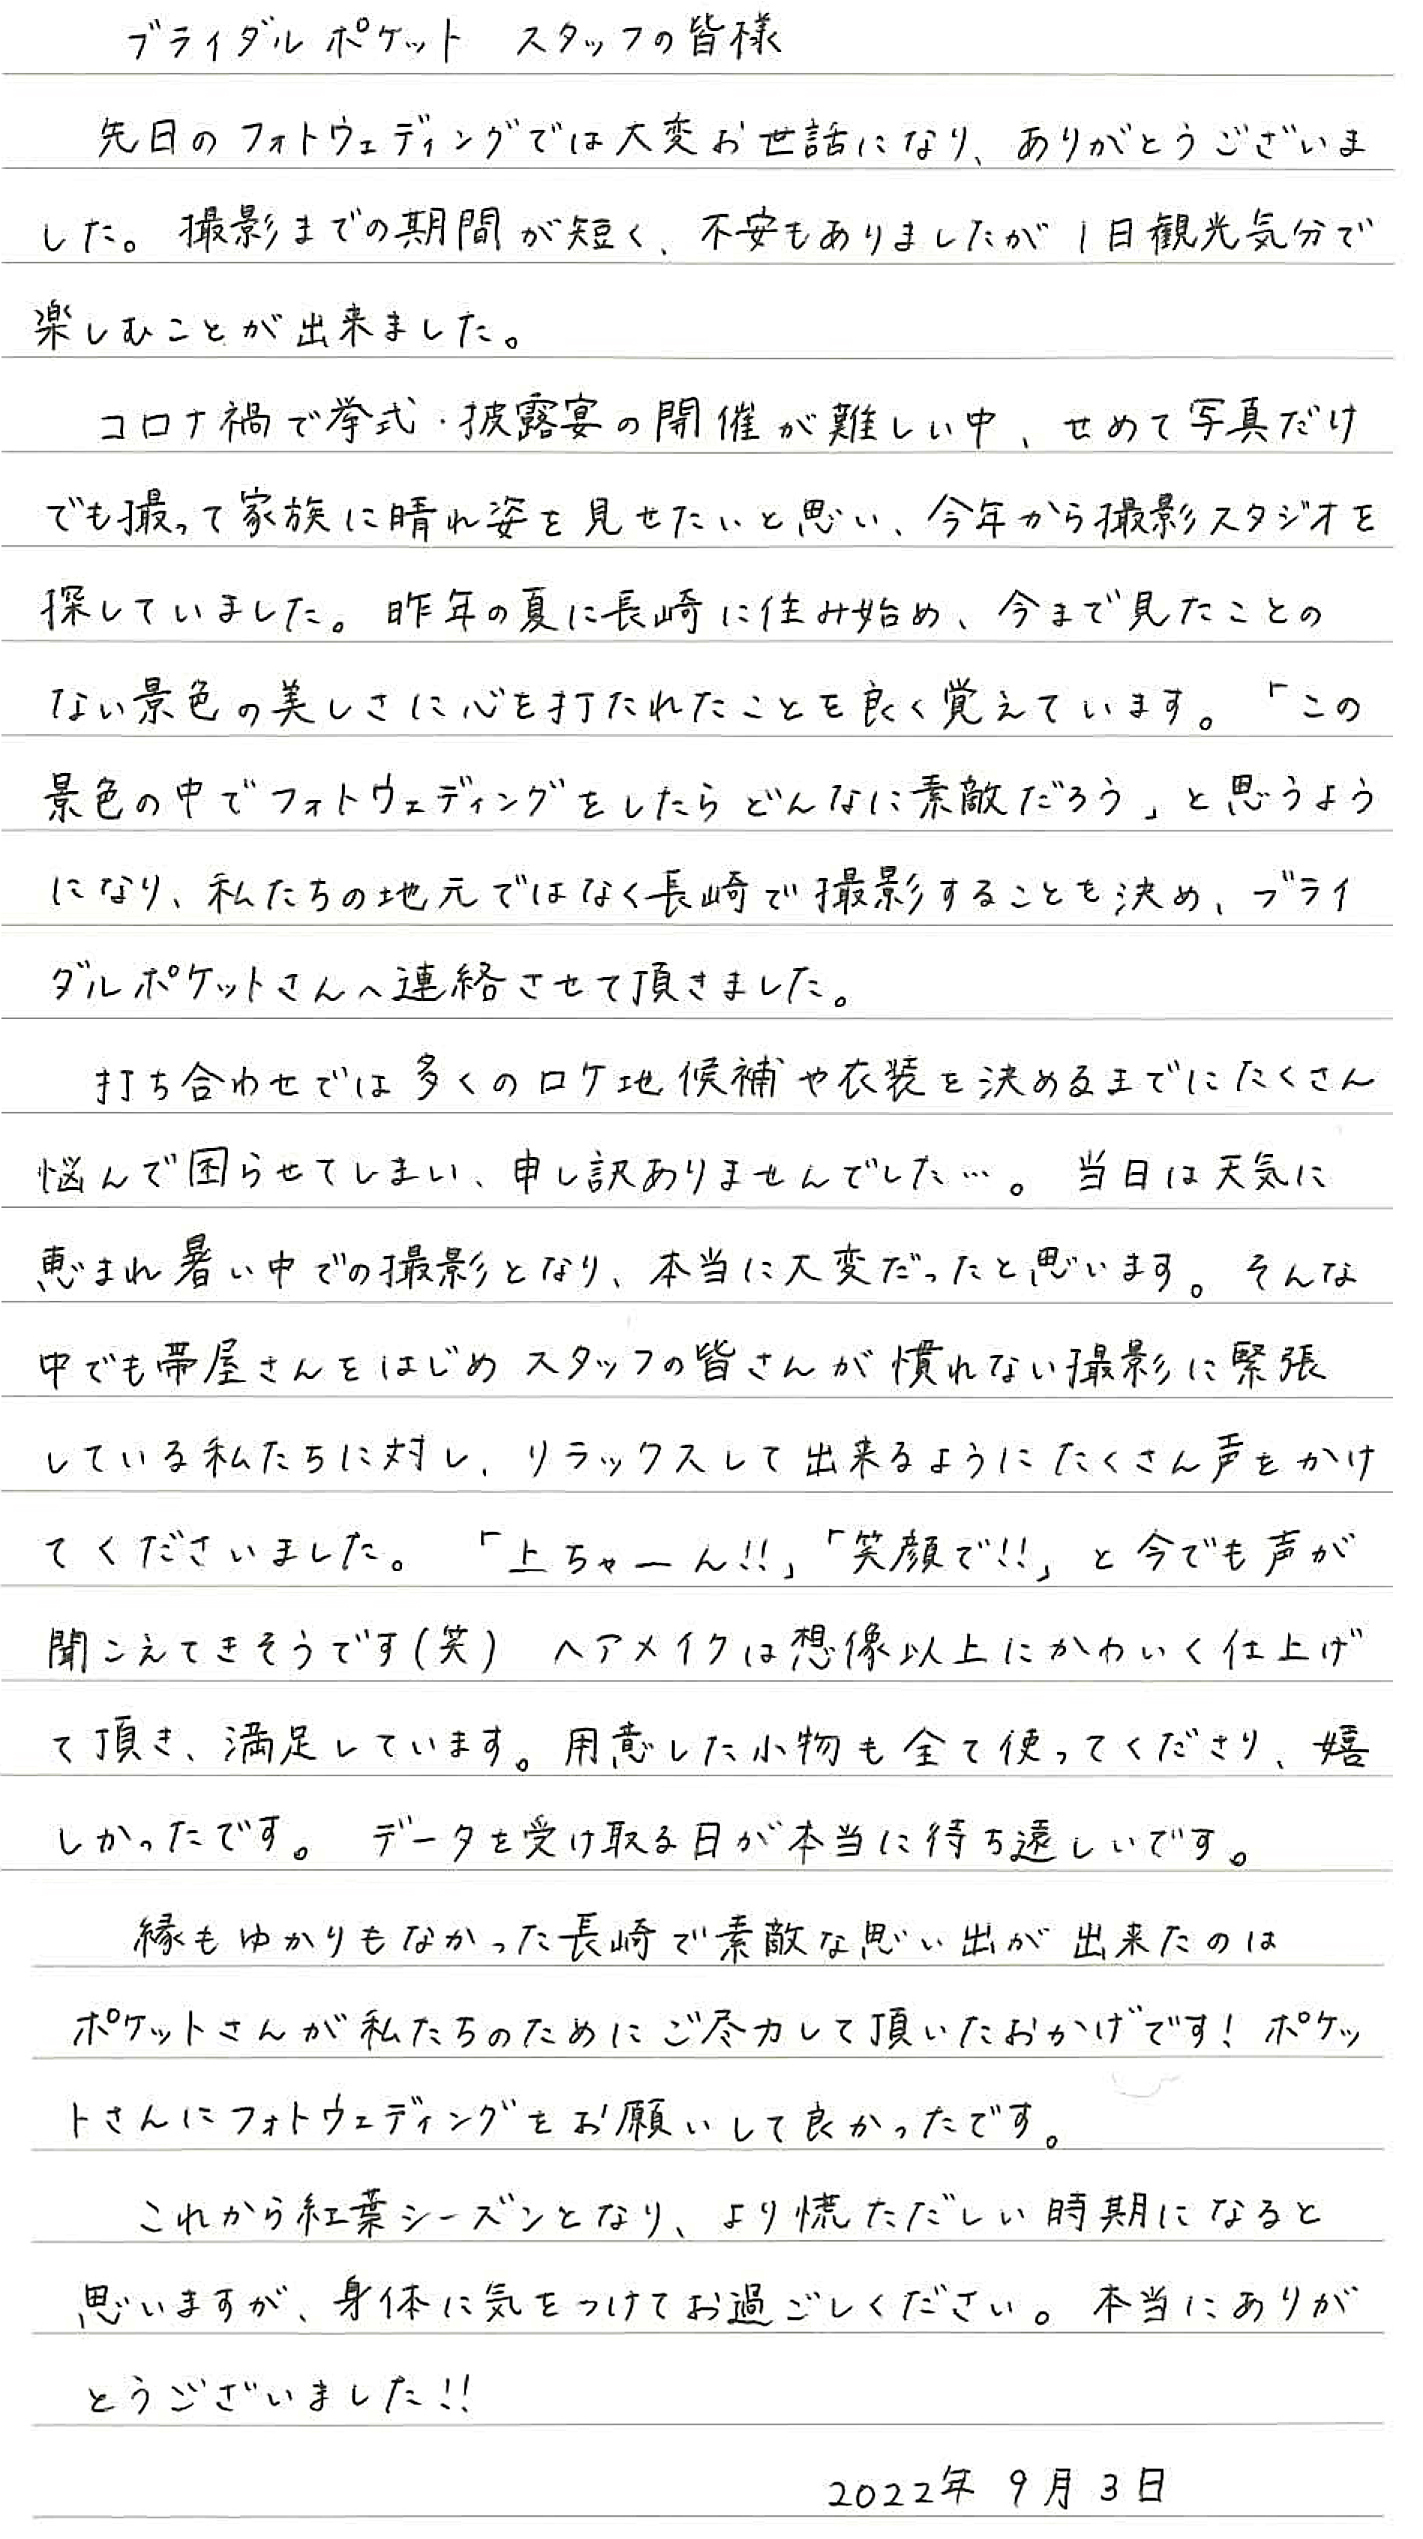 ブライダルポケット　スタッフの皆様
先日のフォトウェディングでは大変お世話になり、ありがとうございま
した。撮影までの期間が短く、不安もありましたが1日観光気分で
楽しむことが出来ました。
コロナ禍で挙式・披露宴の開催が難しい中、せめて写真だけ
でも撮って家族に晴れ姿を見せたいと思い、今年から撮影スタジオを
探していました。昨年の夏に長崎に住み始め、今まで見たことの
ない景色の美しさに心を打たれたことを良く覚えています。「この
景色の中でフォトウェディングをしたらどんなに素敵だろう」と思うよう
になり、私たちの地元ではなく長崎で撮影することを決め、ブライ
ダルポケットさんへ連絡させて頂きました。
打ち合わせでは多くのロケ地候補や衣装を決めるまでにたくさん
悩んで困らせてしまい、申し訳ありませんでした…。当日は天気に
恵まれ暑い中での撮影となり、本当に大変だったと思います。そんな
中でも帯屋さんをはじめスタッフの皆さんが慣れない撮影に緊張
している私たちに対し、リラックスして出来るようにたくさん声をかけ
てくださいました。「上ちゃーん!!」「笑顔で!!」と今でも声が
聞こえてきそうです(笑)　ヘアメイクは想像以上にかわいく仕上げ
て頂き、満足しています。用意した小物も全て使ってくださり、嬉
しかったです。データを受け取る日が本当に待ち遠しいです。
縁もゆかりもなかった長崎で素敵な思い出が出来たのは
ポケットさんが私たちのためにご尽力して頂いたおかげです!ポケッ
トさんにフォトウェディングをお願いして良かったです。
これから紅葉シーズンとなり、より慌ただしい時期になると
思いますが、身体に気をつけてお過ごしください。本当にありが
とうございました!!
2022年 9月 3日